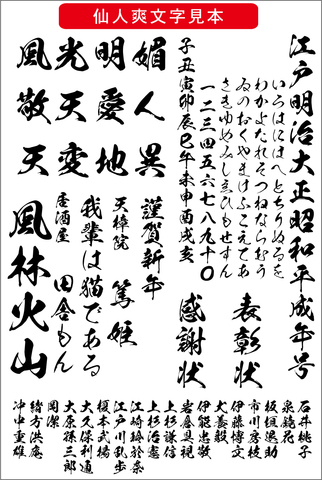 仙人爽文字見本
江戸明治大正昭和平成年号
いろはにほへとちりぬるを
わかよたれそつねならむう
ゐのおくやまけふこえてあ
さきもゆめみしゑひもせすん
一二三四五六七八九十〇
子丑寅卯辰巳午未申酉戌亥
媚人異
明愛地
光天変
風敬天
表彰状
感謝状
謹賀新年
天樟院 篤姫
我輩は猫である
居酒屋 田舎もん
風林火山
石井桃子
泉鏡花
板垣退助
市川房枝
伊藤博文
犬養毅
伊能忠敬
岩倉具視
上杉謙信
上杉治憲
江崎玲於奈
江戸川乱歩
榎本武揚
大久保利通
大原孫三郎
岡潔
緒方洪庵
沖中重雄